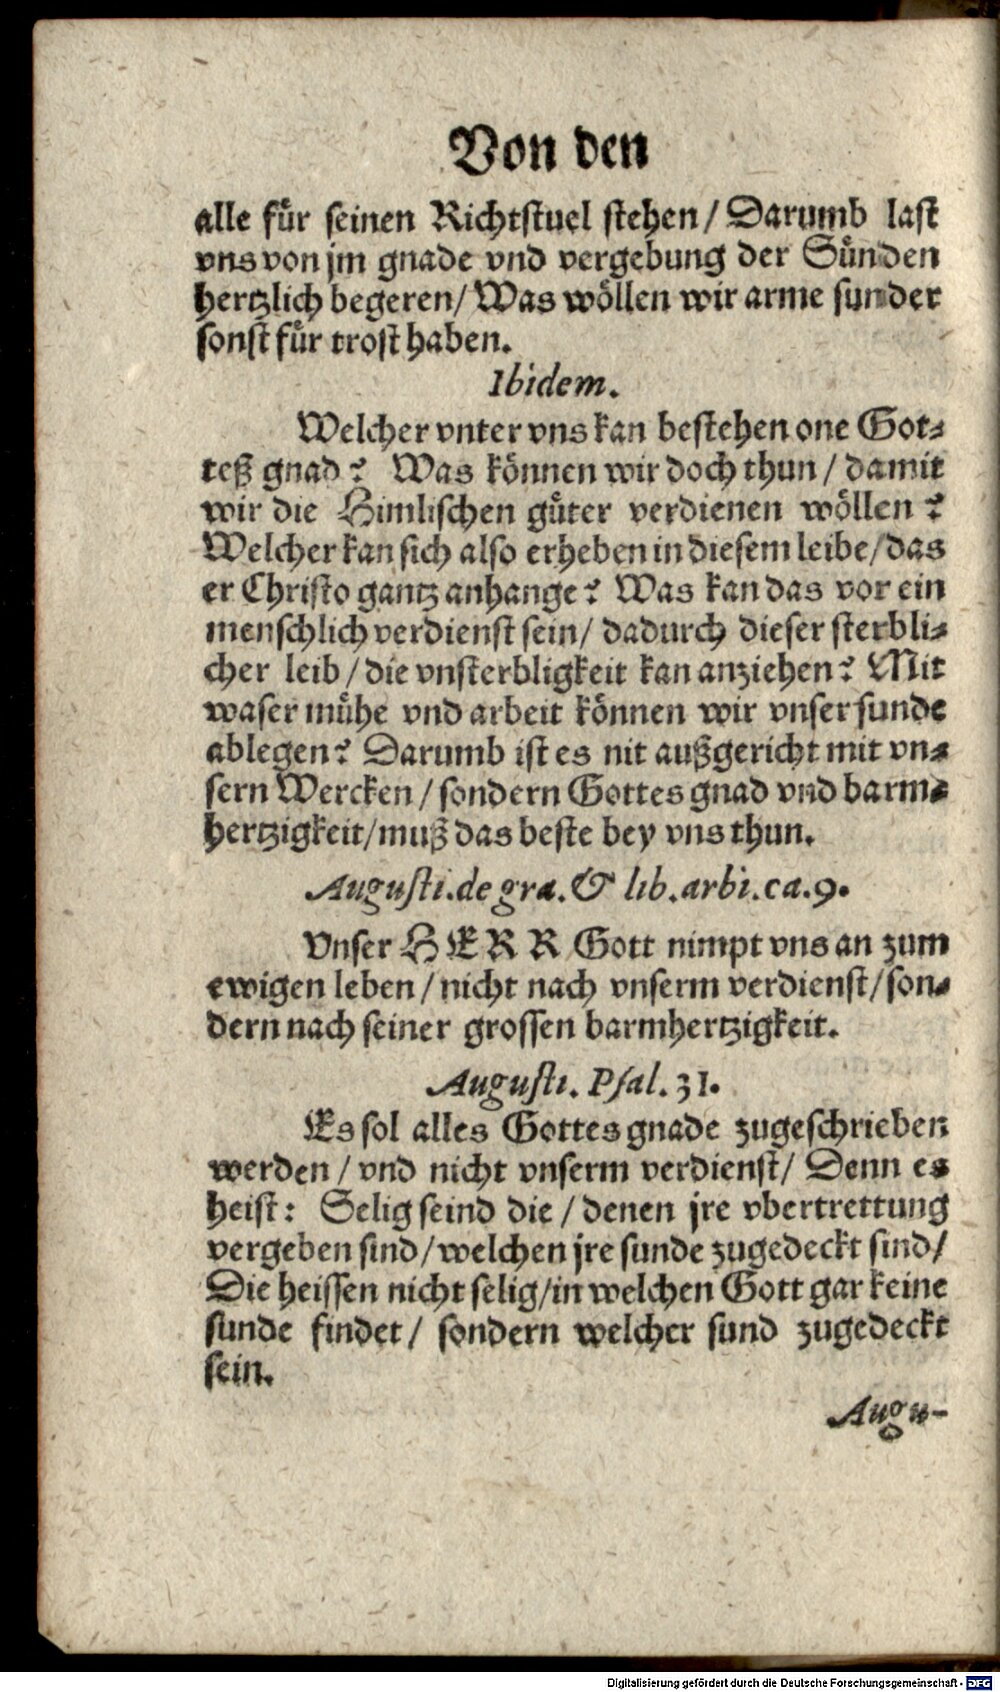 Von den
alle für seinen Richtstuel stehen / Darumb last
vns von jm gnade vnd vergebung der Sünden
hertzlich begeren / Was wöllen wir arme sunder
sonst für trost haben.
Ibidem.
Welcher vnter vns kan bestehen one Got⸗
teß gnad? Was können wir doch thun / damit
wir die Himlischen güter verdienen wöllen?
Welcher kan sich also erheben in diesem leibe / das
er Christo gantz anhange? Was kan das vor ein
menschlich verdienst sein / dadurch dieser sterbli⸗
cher leib / die vnsterbligkeit kan anziehen? Mit
waser mühe vnd arbeit können wir vnser sunde
ablegen? Darumb ist es nit außgericht mit vn⸗
sern Wercken / sondern Gottes gnad vnd barm⸗
hertzigkeit / muß das beste bey vns thun.
Augusti. de gra. & lib. arbi. ca. 9.
Vnser HERR Gott nimpt vns an zum
ewigen leben / nicht nach vnserm verdienst / son⸗
dern nach seiner grossen barmhertzigkeit.
Augusti. Psal. 31.
Es sol alles Gottes gnade zugeschrieben
werden / vnd nicht vnserm verdienst / Denn es
heist: Selig seind die / denen jre vbertrettung
vergeben sind / welchen jre sunde zugedeckt sind /
Die heissen nicht selig / in welchen Gott gar keine
sunde findet / sondern welcher sund zugedeckt
sein.
Augu-
Digitalisierung gefördert durch die Deutsche Forschungsgemeinschaft - DFG